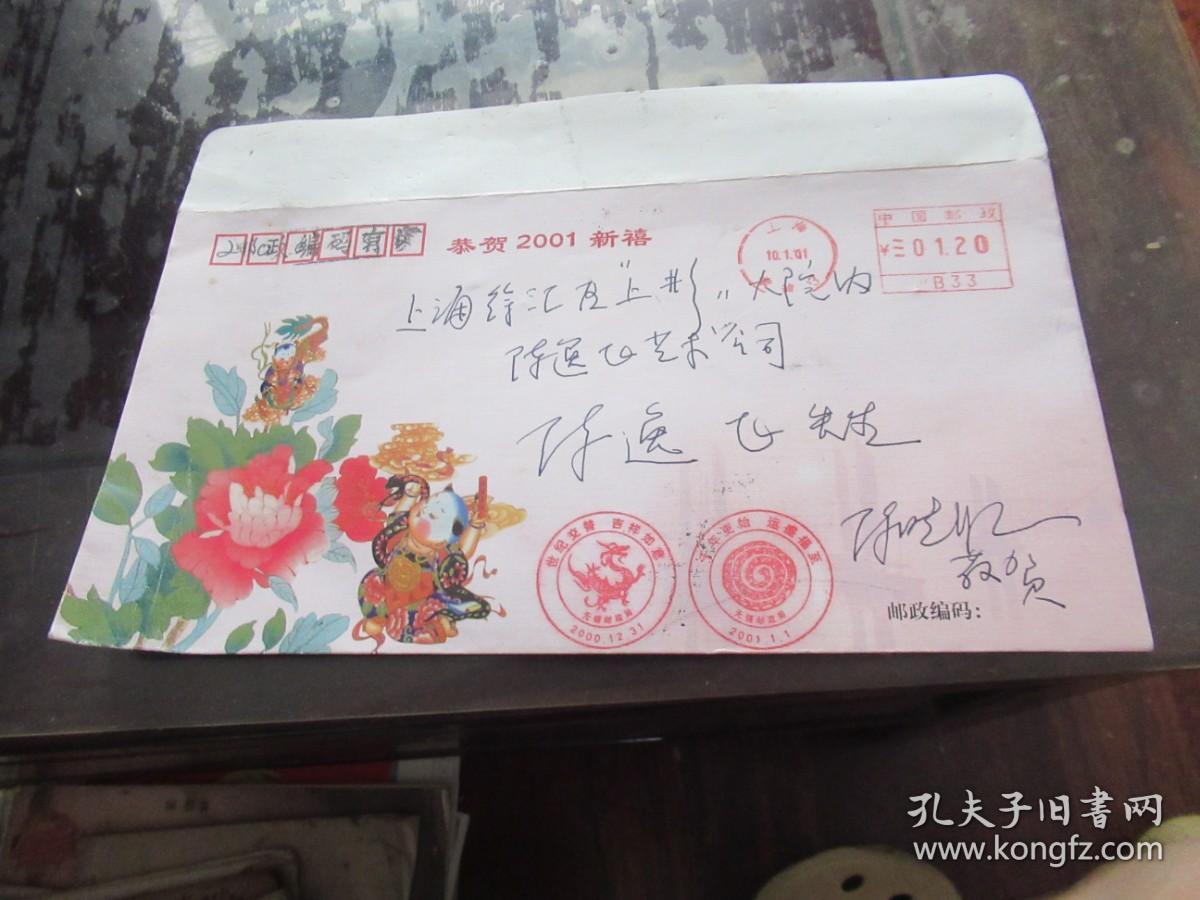 邮政编码
恭贺 2001 新禧
上海
10.1.01
中国邮政
¥ 01.20
B33
上海徐汇区"上影"大院内
陈逸飞艺术公司
陈逸飞先生
世纪交替 吉祥如意
无锡邮政局
2000.12.31
千年更始 运盛福至
无锡邮政局
2001.1.1
敬贺
邮政编码:
孔夫子旧书网
www.kongfz.com